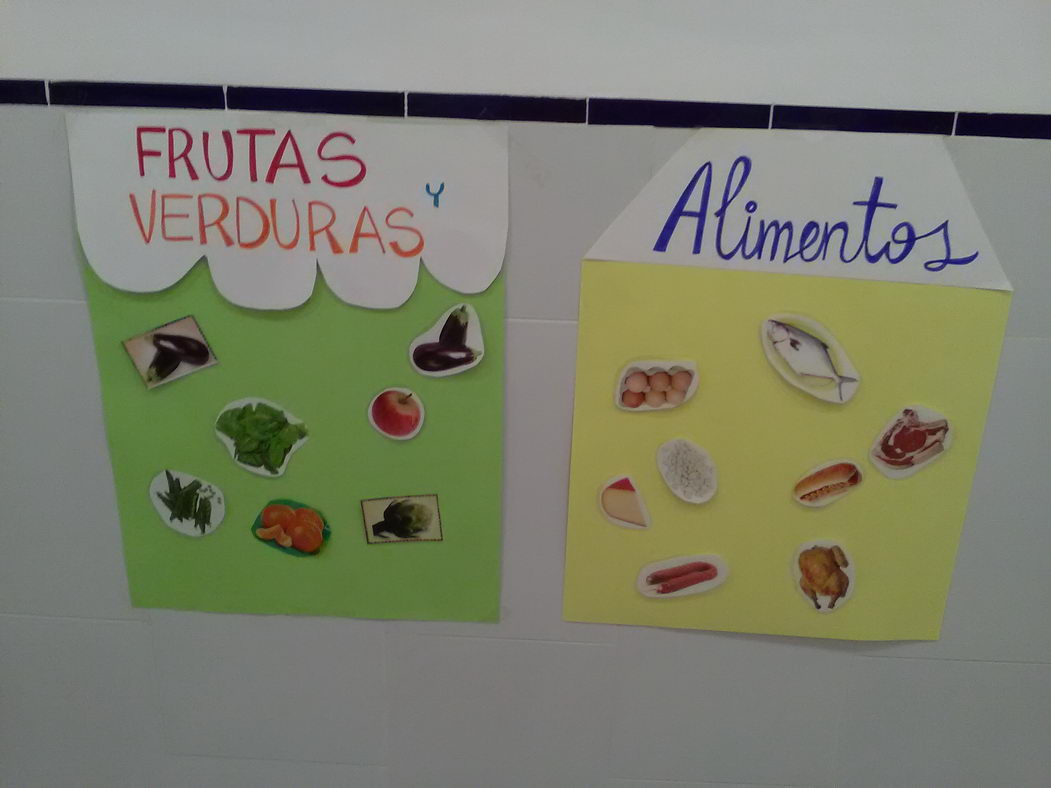 FRUTAS Y
VERDURAS
Alimentos